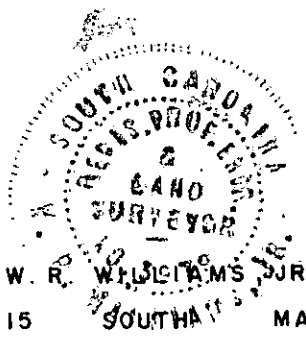 SOUTH CAROLINA
REGIS. PROF. ENGR.
&
LAND
SURVEYOR
W. R. WILLIAMS JR
15 SOUTH MA